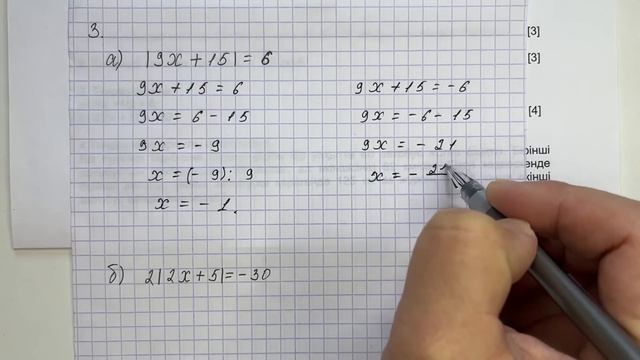 3.
a) |9x + 15| = 6
9x + 15 = 6
9x = 6 - 15
9x = - 9
x = (- 9) : 9
x = - 1.
9x + 15 = - 6
9x = - 6 - 15
9x = - 21
x = - 21
б) 2|2x + 5| = - 30
[3]
[3]
[4]
рінші
енде
кінші